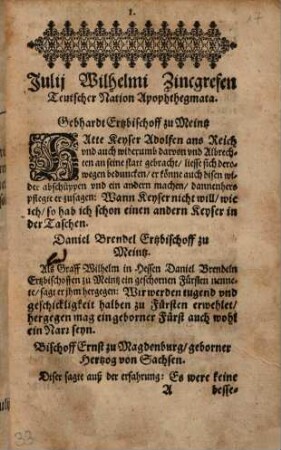 1.
Julij Wilhelmi Zincgrefen
Teutscher Nation Apophthegmata.
Gebhardt Ertzbischoff zu Meintz
HAtte Keyser Adolfen ans Reich
vnd auch widerumb darvon vnd Albrech-
ten an seine statt gebracht / liesse sich dero-
wegen beduncken / er könne auch disen wi-
der abschüppen vnd ein andern machen / dannenhero
pflegte er zusagen: Wann Keyser nicht will / wie
ich / so hab ich schon einen andern Keyser in
der Taschen.
Daniel Brendel Ertzbischoff zu
Meintz.
Als Graff Wilhelm in Hessen Daniel Brendeln
Ertzbischoffen zu Meintz ein gebornen Fürsten nenne-
te / sagt er ihm hergegen: Wir werden tugend vnd
geschickligkeit halben zu Fürsten erwehlet /
hergegen mag ein geborner Fürst auch wohl
ein Narz seyn.
Bischoff Ernst zu Magdenburg / geborner
Hertzog von Sachsen.
Diser sagte auß der erfahrung: Es were keine
A besse-
33